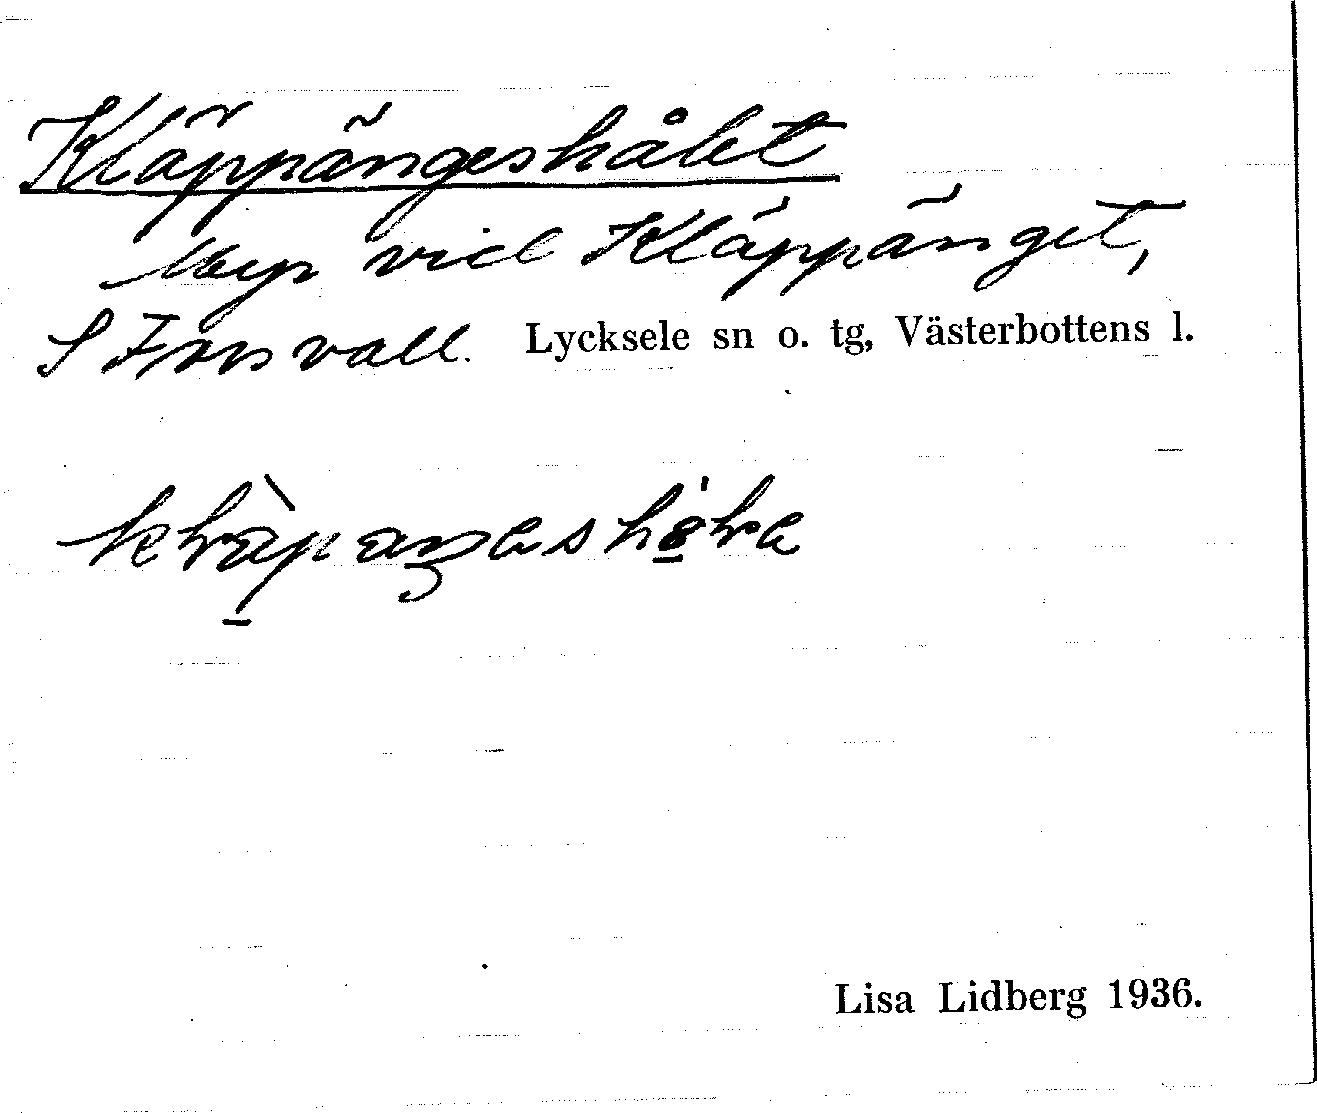 Kläppängeshålet
Myr vid Kläppänget,
S Furuvall. Lycksele sn o. tg, Västerbottens l.
Lisa Lidberg 1936.